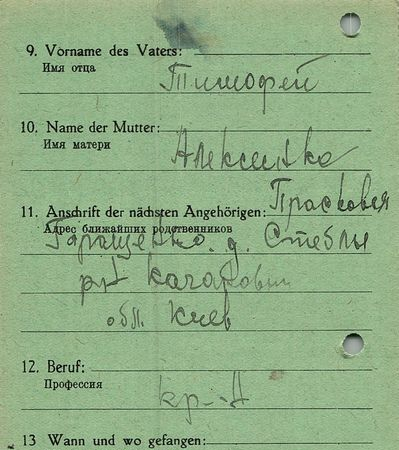 9. Vorname des Vaters:
Имя отца
Тимофей
10. Name der Mutter:
Имя матери
11. Anschrift der nächsten Angehörigen: Прасковея
Адрес ближайших родственников
д. Стеблы
обл. Киев
12. Beruf:
Профессия
кр-
13 Wann und wo gefangen: